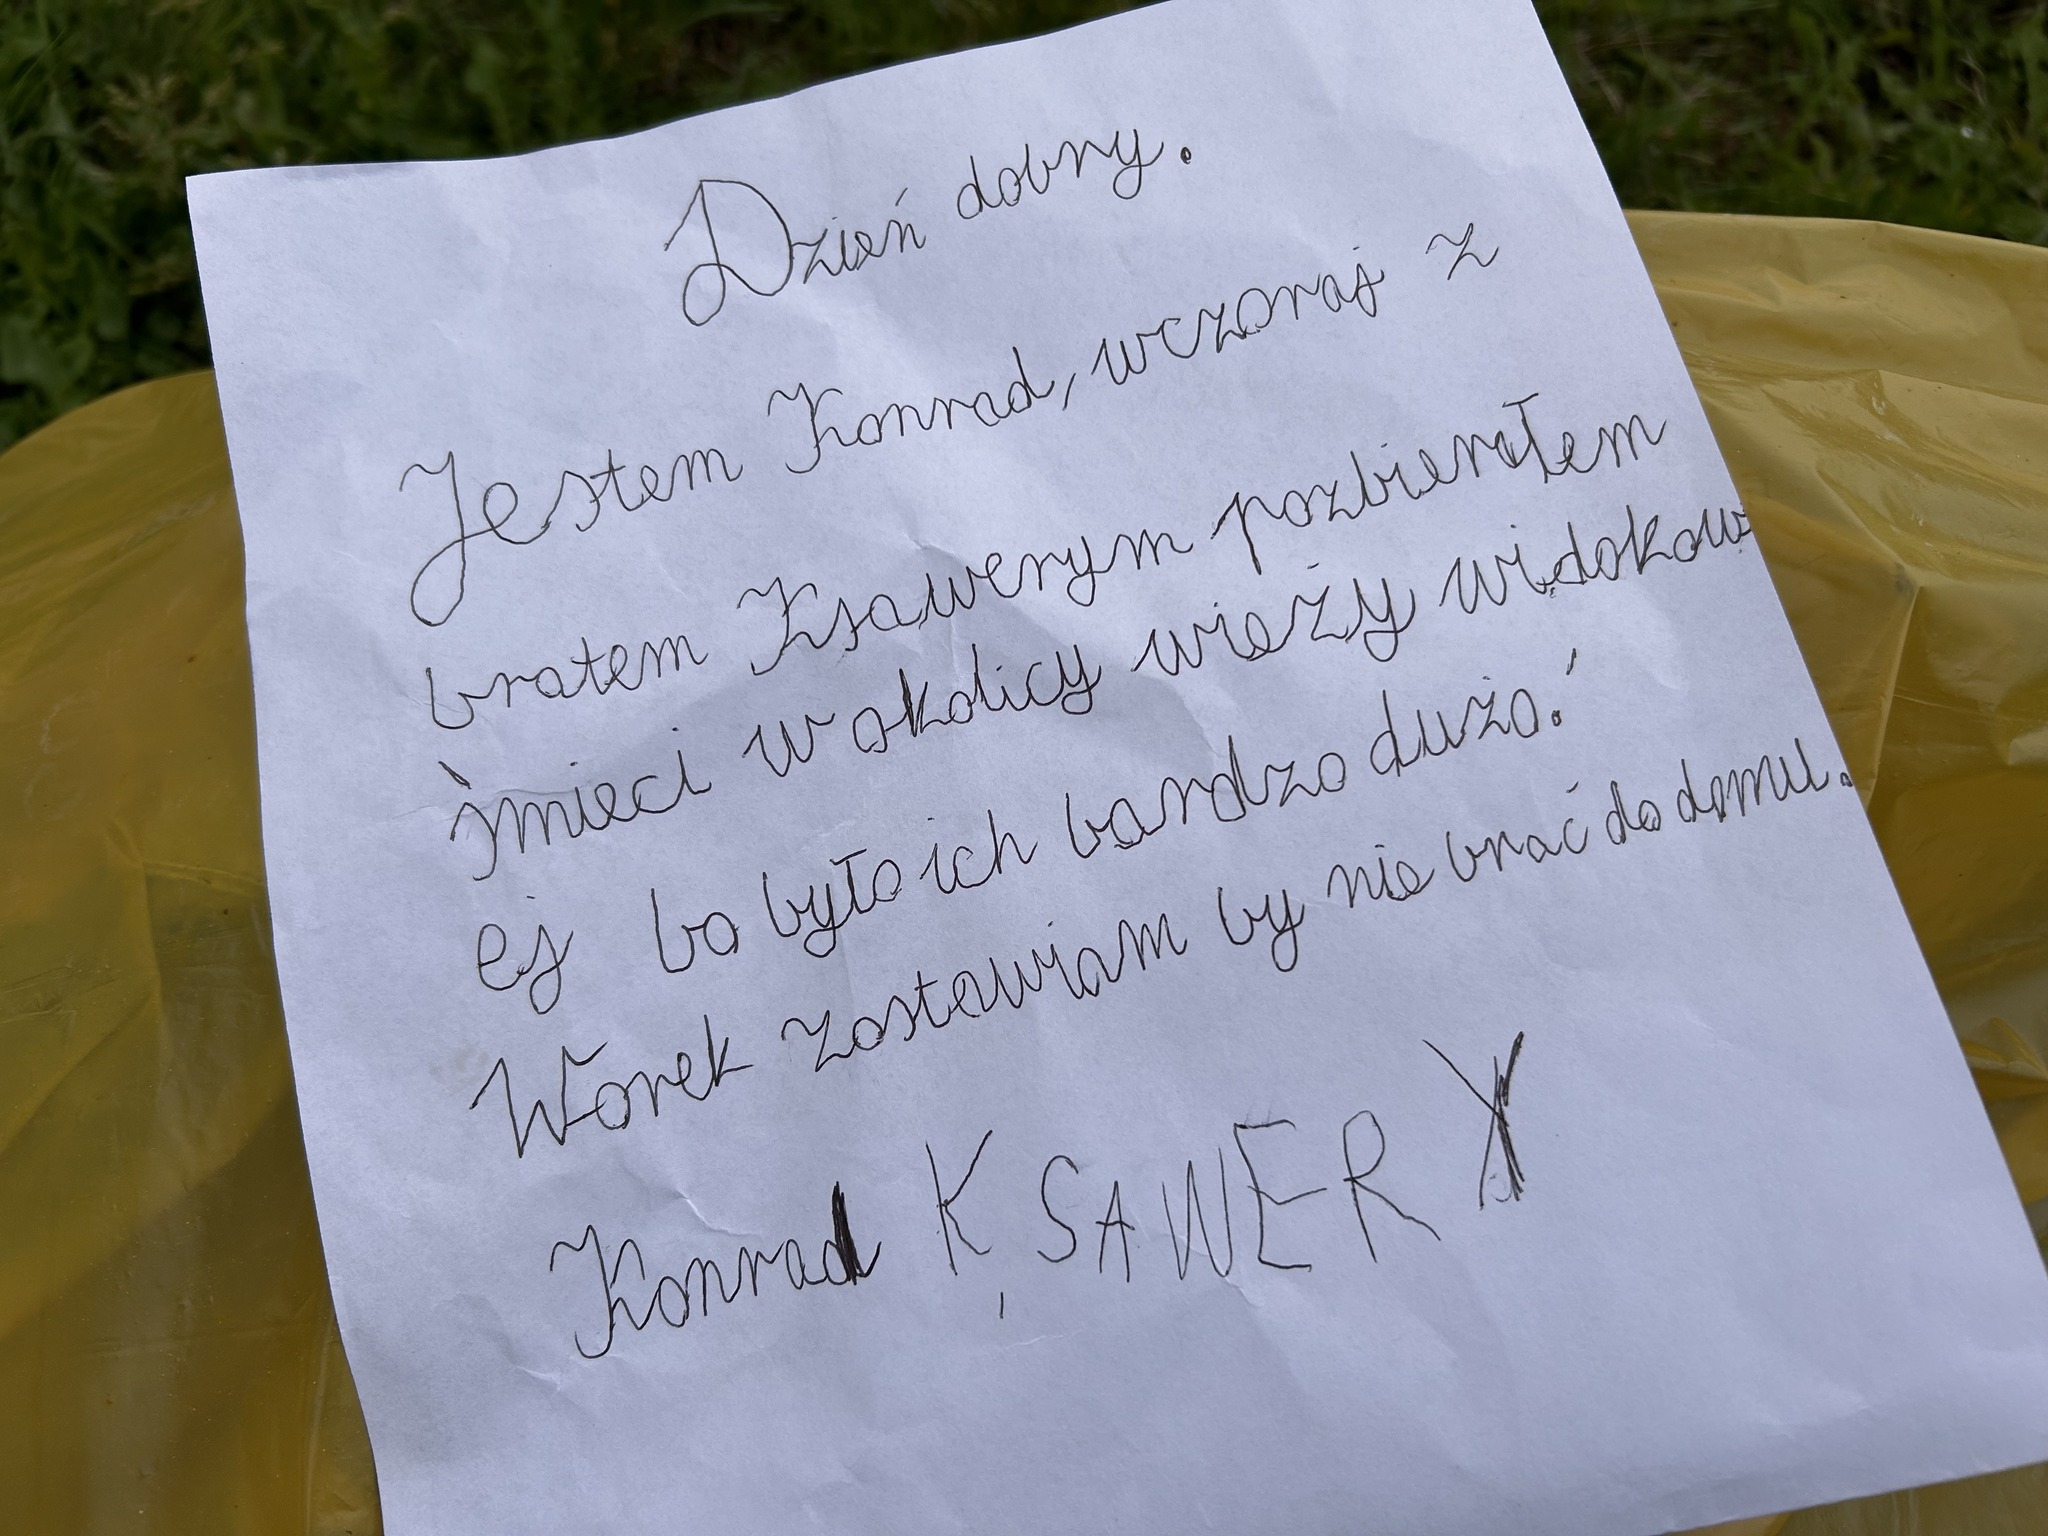 Dzień dobry.
Jestem Konrad, wczoraj z
bratem Ksawerym pozbierałem
śmieci w okolicy wieży widokow
ej bo było ich bardzo dużo!
Worek zostawiam by nie brać do domu.
Konrad KSAWERY